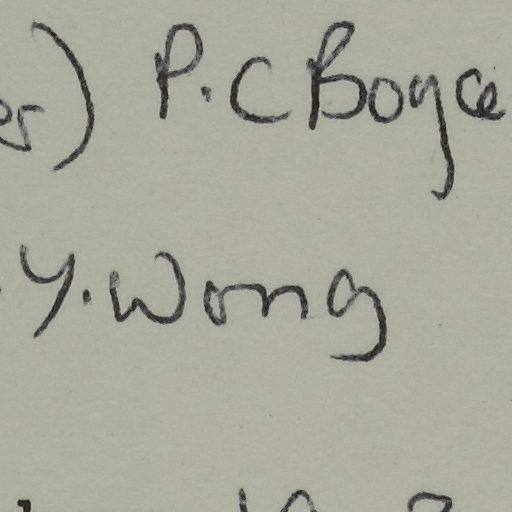 er) P.C Boyce
.Y. Wong